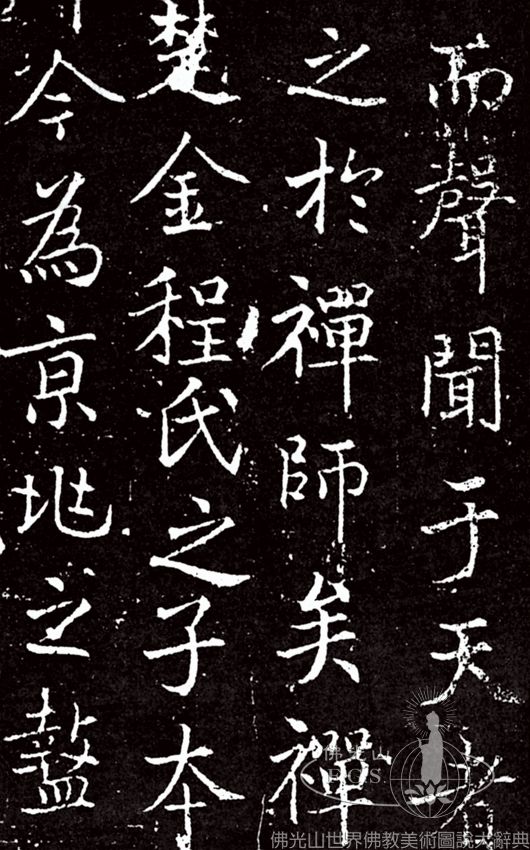 而聲聞于天者
之於禪師矣禪
楚金程氏之子本
今為亰兆之盩
佛光山
F.G.S
佛光山世界佛教美術圖說大辭典